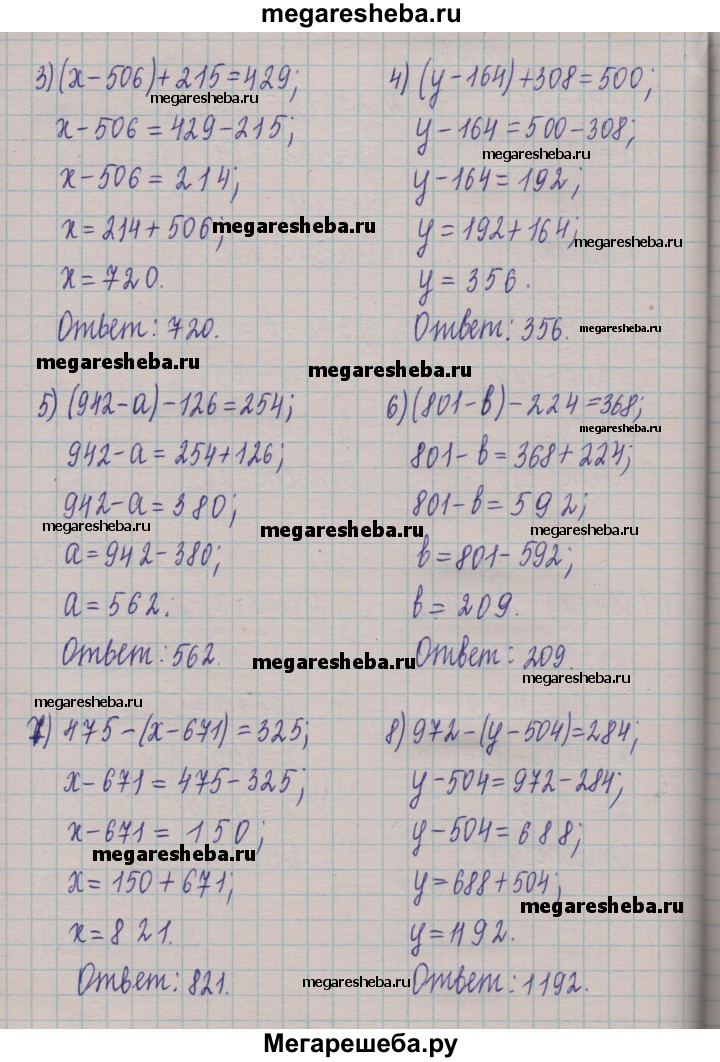 megaresheba.ru
3) (x-506)+215=429;
megaresheba.ru
x-506=429-215;
x-506=214;
x=214+506;
megaresheba.ru
x=720.
Ответ: 720.
megaresheba.ru
4) (y-164)+308=500;
y-164=500-308;
megaresheba.ru
y-164=192;
y=192+164;
megaresheba.ru
y=356.
Ответ: 356.
megaresheba.ru
megaresheba.ru
5) (942-a)-126=254;
942-a=254+126;
942-a=380;
megaresheba.ru
a=942-380;
a=562.
Ответ: 562.
megaresheba.ru
6) (801-в)-224=368;
megaresheba.ru
801-в=368+224;
801-в=592;
megaresheba.ru
в=801-592;
в=209.
Ответ: 209.
megaresheba.ru
megaresheba.ru
megaresheba.ru
7) 475-(x-671)=325;
x-671=475-325;
x-671=150;
megaresheba.ru
x=150+671;
x=821.
Ответ: 821.
8) 972-(y-504)=284;
y-504=972-284;
y-504=688;
y=688+504;
megaresheba.ru
y=1192.
Ответ: 1192.
megaresheba.ru
Мегарешеба.ру